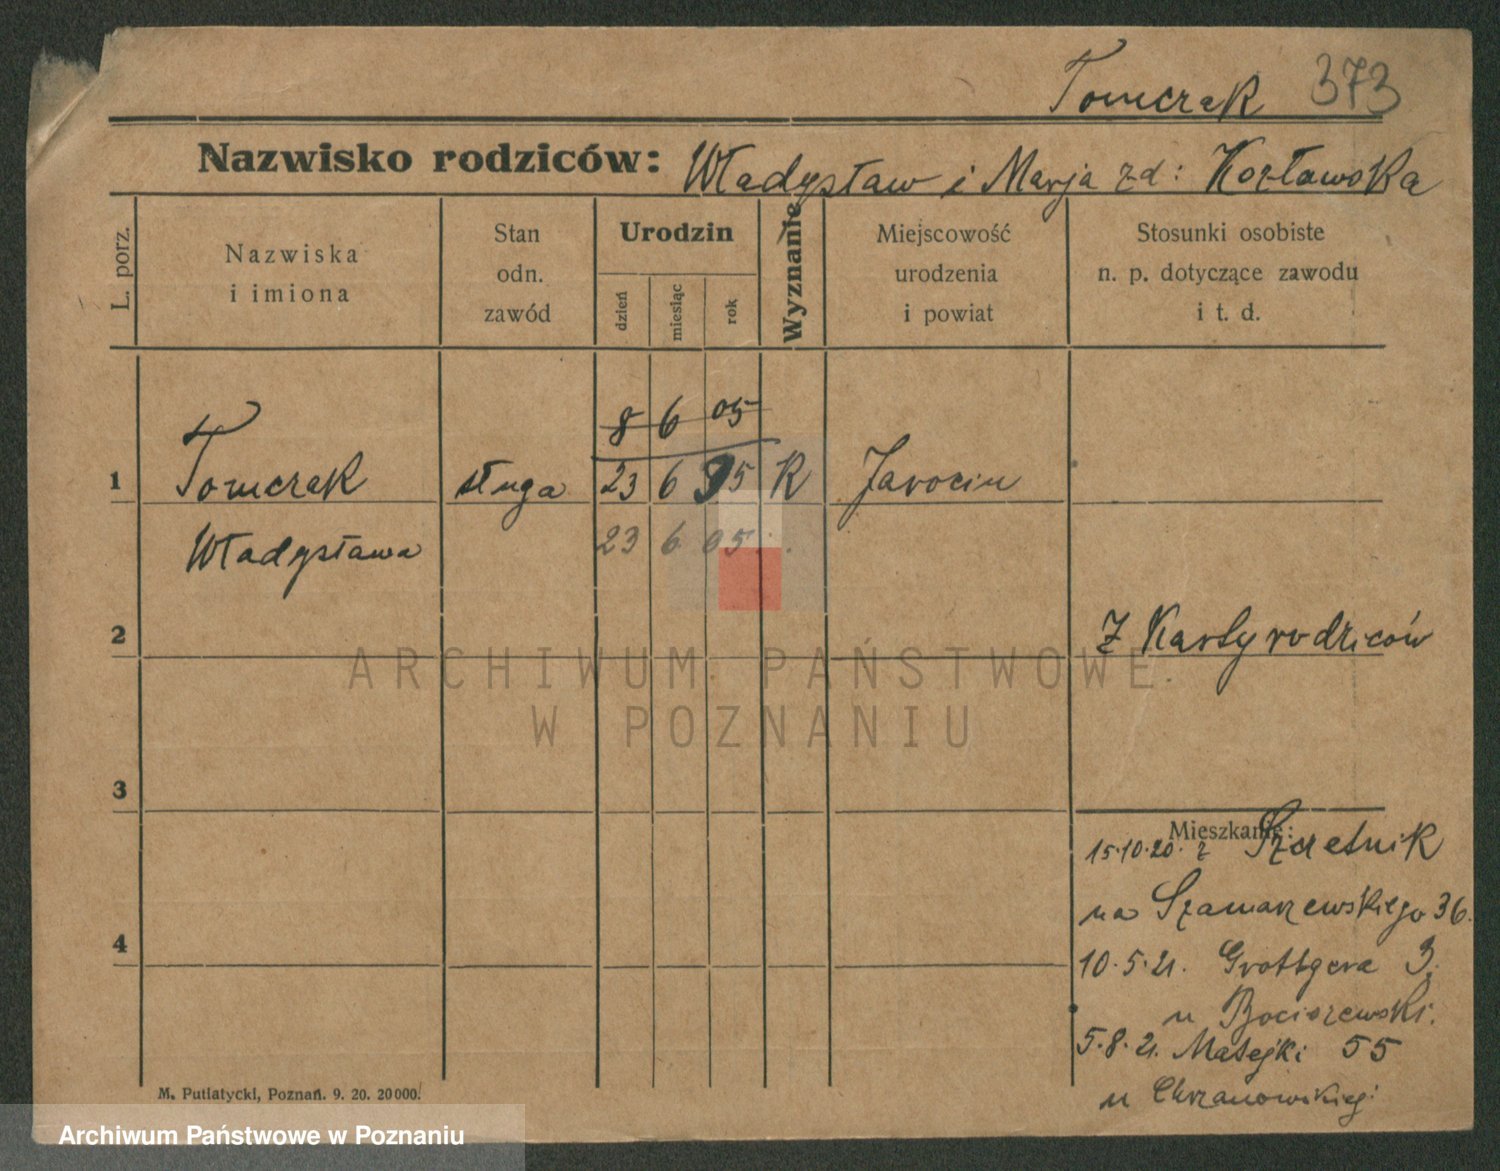 Tomczak 373
Nazwisko rodziców: Władysław i Marja zd: Kozłowska
L. porz.
Nazwiska
i imiona
Stan
odn.
zawód
Urodzin
dzień
miesiąc
rok
Wyznanie
Miejscowość
urodzenia
i powiat
Stosunki osobiste
n. p. dotyczące zawodu
i t. d.
8 6 05
1 Tomczak sługa 23 6 05 K Jarocin
Władysława 23 6 05
2 Z Karty rodziców
ARCHIWUM PAŃSTWOWE
W POZNANIU
3
Mieszkanie:
15.10.20. z
na Szamarzewskiego 36.
4
10.5.21. Grottgera 3.
u Bociszewski.
5.8.21. Matejki 55
u Chrzanowskiej
M. Putiatycki, Poznań. 9. 20. 20000.
Archiwum Państwowe w Poznaniu